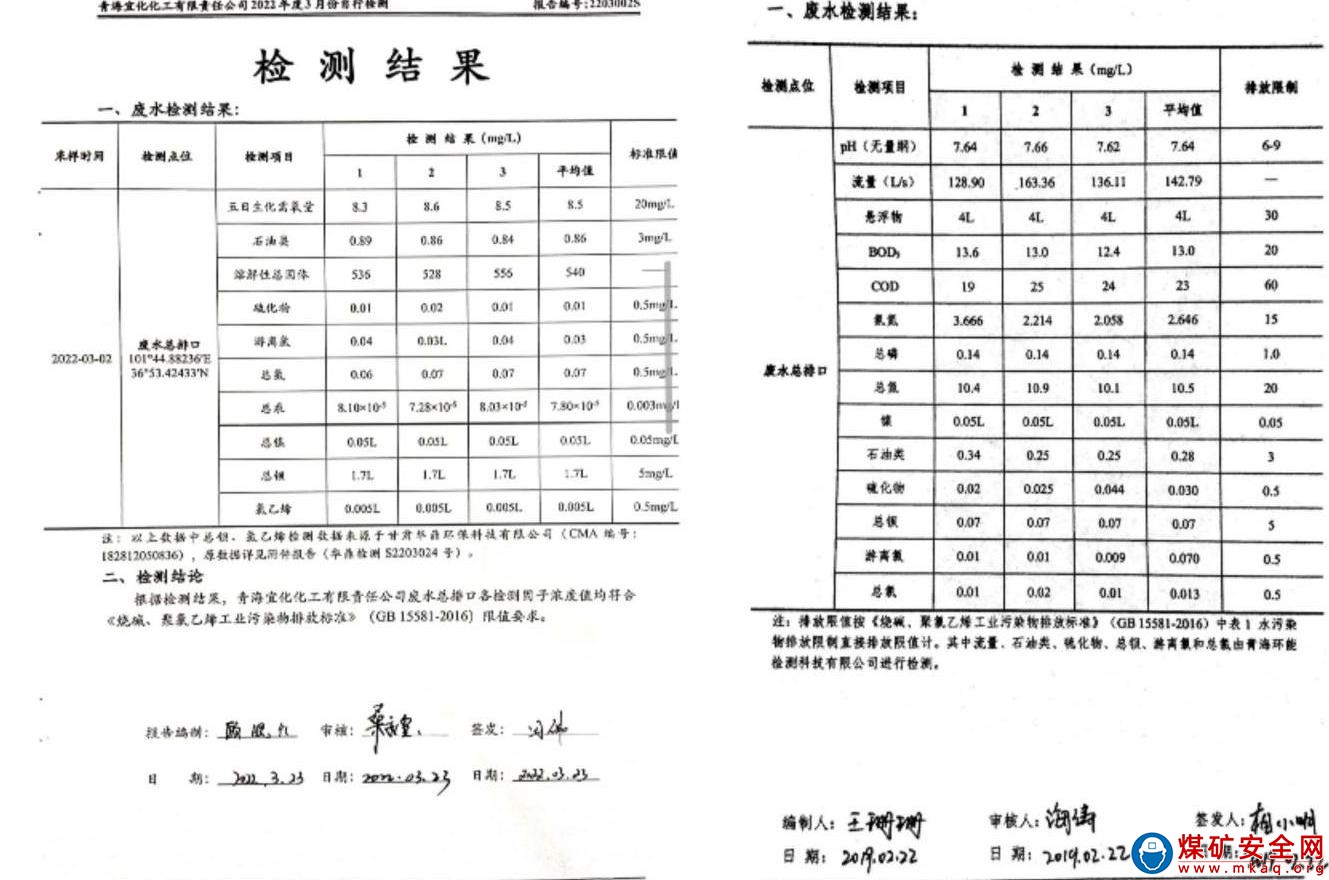 青海宜化化工有限责任公司2022年度3月份自行检测 报告编号:2203002S
检测结果
一、废水检测结果:
采样时间 检测点位 检测项目 检测结果(mg/L) 标准限值
1 2 3 平均值
五日生化需氧量 8.3 8.6 8.5 8.5 20mg/L
石油类 0.89 0.86 0.84 0.86 3mg/L
溶解性总固体 536 528 556 540 —
硫化物 0.01 0.02 0.01 0.01 0.5mg/L
游离氯 0.04 0.03L 0.04 0.03 0.5mg/L
总氯 0.06 0.07 0.07 0.07 0.5mg/L
总汞 8.10×10⁻⁵ 7.28×10⁻⁵ 8.03×10⁻⁵ 7.80×10⁻⁵ 0.003mg/l
总镍 0.05L 0.05L 0.05L 0.05L 0.05mg/L
总钡 1.7L 1.7L 1.7L 1.7L 5mg/L
氯乙烯 0.005L 0.005L 0.005L 0.005L 0.5mg/L
2022-03-02
废水总排口
101°44.88236′E
36°53.42433′N
注:以上数据中总钡、氯乙烯检测数据来源于甘肃华鼎环保科技有限公司(CMA 编号:
182812050836),原数据详见附件报告(华鼎检测 S2203024 号)。
二、检测结论
根据检测结果,青海宜化化工有限责任公司废水总排口各检测因子浓度值均符合
《烧碱、聚氯乙烯工业污染物排放标准》(GB 15581-2016)限值要求。
报告编制: 审核: 签发:
日 期:2022.3.23 日期:2022.03.23 日期:2022.03.23
一、废水检测结果:
检测点位 检测项目 检测结果(mg/L) 排放限制
1 2 3 平均值
pH(无量纲) 7.64 7.66 7.62 7.64 6-9
流量(L/s) 128.90 163.36 136.11 142.79 —
悬浮物 4L 4L 4L 4L 30
BOD₅ 13.6 13.0 12.4 13.0 20
COD 19 25 24 23 60
氨氮 3.666 2.214 2.058 2.646 15
总磷 0.14 0.14 0.14 0.14 1.0
总氮 10.4 10.9 10.1 10.5 20
镍 0.05L 0.05L 0.05L 0.05L 0.05
石油类 0.34 0.25 0.25 0.28 3
硫化物 0.02 0.025 0.044 0.030 0.5
总钡 0.07 0.07 0.07 0.07 5
游离氯 0.01 0.01 0.009 0.070 0.5
总氯 0.01 0.02 0.01 0.013 0.5
废水总排口
注:排放限值按《烧碱、聚氯乙烯工业污染物排放标准》(GB 15581-2016)中表 1 水污染
物排放限制直接排放限值计。其中流量、石油类、硫化物、总钡、游离氯和总氯由青海环能
检测科技有限公司进行检测。
编制人:王珊珊 审核人: 签发人:
日 期:2019.02.22 日 期:2019.02.22
煤矿安全网
www.mkaq.org